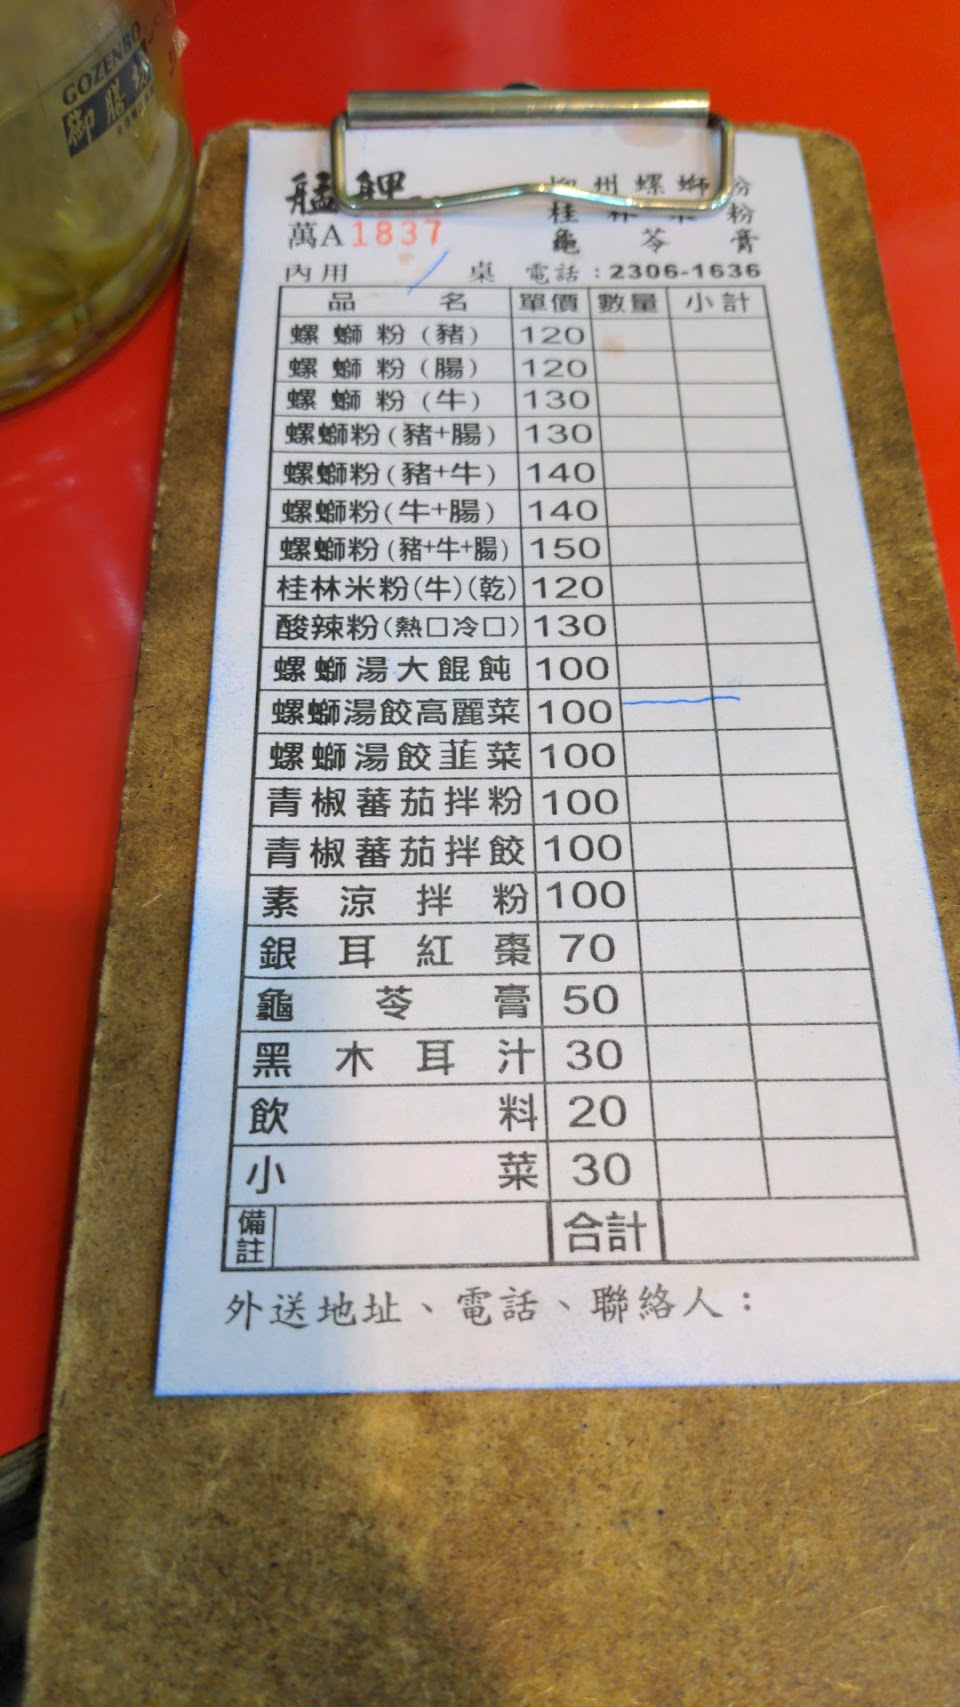 GOZENBO
御膳
艋舺
州螺螄粉
桂 粉
龜苓膏
萬A1837
內用 桌 電話：2306-1636
品名 單價 數量 小計
螺螄粉(豬) 120
螺螄粉(腸) 120
螺螄粉(牛) 130
螺螄粉(豬+腸) 130
螺螄粉(豬+牛) 140
螺螄粉(牛+腸) 140
螺螄粉(豬+牛+腸) 150
桂林米粉(牛)(乾) 120
酸辣粉(熱□冷□) 130
螺螄湯大餛飩 100
螺螄湯餃高麗菜 100
螺螄湯餃韮菜 100
青椒蕃茄拌粉 100
青椒蕃茄拌餃 100
素涼拌粉 100
銀耳紅棗 70
龜苓膏 50
黑木耳汁 30
飲料 20
小菜 30
備註 合計
外送地址、電話、聯絡人：